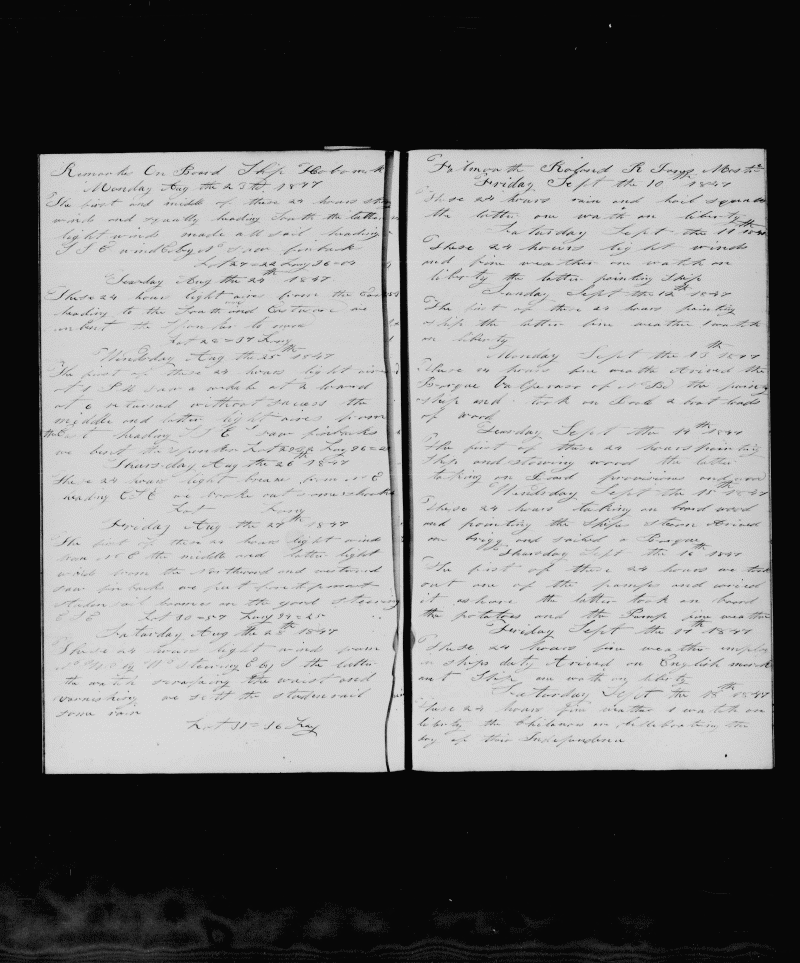 Remarks On Board Ship Hobomok
Monday Aug the 23th 1847
The first and middle of these 24 hours strong
winds and squally heading South the latter
light winds made all sail heading
S S E wind E by N saw finback
Lat 27=22 Long 36=07
Tuesday Aug the 24th 1847
These 24 hours light airs from the East
heading to the South and Eastward we
unbent the Spanker to mend
Lat 28=37 Long
Wendsday Aug the 25th 1847
The first of these 24 hours light airs
at 1 P M saw a whale at 2 lowerd
at 6 returned without success the
middle and latter light airs from
the E heading S S E saw finbacks
we bent the Spanker Lat Long
Thursday Aug the 26th 1847
These 24 hours light brease from N E
heading E S E we broke out some shooks
Lat Long
Friday Aug the 27th 1847
The first of these 24 hours light wind
from N E the middle and latter light
wind from the Northward and westward
saw finbacks we put foretopmast
studen sail booms on the yard steering
E S E Lat 30=57 Long 37=25
Saturday Aug the 28th 1847
These 24 hours light winds from
steering E by S the latter
the watch scraping the waist and
varnishing we sett the studen sail
some rain
Lat 31=36 Long
Falmouth Roland R Jones Master
Friday Sept the 10 1847
These 24 hours rain and hail squalls
the latter one watch on liberty
Saturday Sept the 11th 1847
These 24 hours light winds
and fine weather one watch on
liberty the latter painting ship
Sunday Sept the 12th 1847
The first of these 24 hours painting
ship the latter fine weather 1 watch
on liberty
Monday Sept the 13th 1847
These 24 hours fine weather Arived the
Barque Valparaso of N Bd the painting
ship and took on Board 2 boat loads
of wood
Tuesday Sept the 14th 1847
The first of these 24 hours painting
Ship and stowing wood the latter
taking on Board provisions and wood
Wendsday Sept the 15th 1847
These 24 hours taking on board wood
and painting the ships stern Arived
an brigg and sailed a Barque
Thursday Sept the 16th 1847
The first of these 24 hours we took
out one of the pumps and
it ashore the latter took on board
the potatoes and the Pump fine weather
Friday Sept the 17th 1847
These 24 hours fine weather employed
in ships duty Arived an English merch
ant Ship one watch on liberty
Saturday Sept the 18th 1847
These 24 hours fine weather 1 watch on
liberty the Chilanoes are Cellebrateing the
day of their Independence